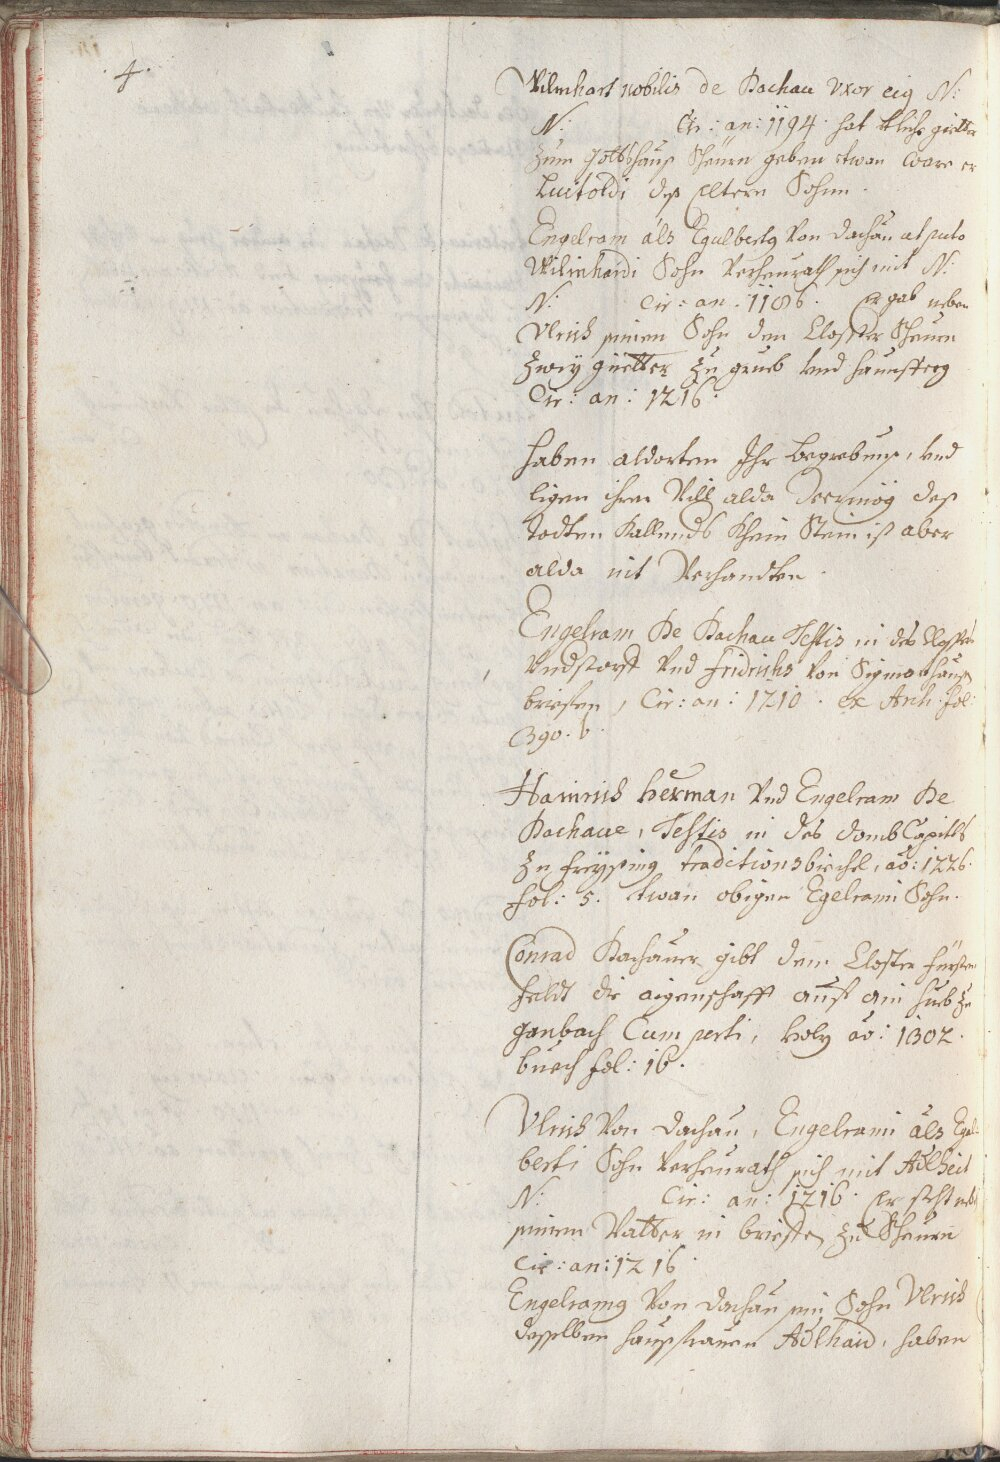 4.
Wilmhart nobilis de Dachau Vxor eig N:
N: Cir: an: 1194. hat etliche güetter
zum Gottshauß Scheurn geben etwan ware er
Luitoldi deß Eltern Sohn.
Engelram als Egulbertg Von Dachau ut puto
Wilmhardi Sohn Verheurath sich mit N:
N: Cir: an: 1186. Er gab neben
Vlrich seinem Sohn dem Closter Scheurn
Zwey güetter zu grueb vnd haunsterg
Cir: an: 1216.
haben aldorten Ihr begrebnus, vnd
ligen ihrer Vill alda Vermög deß
todten Kallenders Khein Stein ist aber
alda nit Verhandten.
Engelram De Dachau Testis in des Closters
Vndstorff Vnd Fridrichs Von Sigmershausen
brieffen, Cir: an: 1210. ex Arch. fol:
390. b.
Hainrich Herman Vnd Engelram De
Dachaue, Testis in des domb Capitls
zu Freysing traditionsbiechl, ao: 1226.
fol: 5. etwan obigen Egelrami Sohn.
Conrad Dachauer gibt dem Closter Fürsten
feldt die aigenschafft auf ain hueb zu
Ganbach Cum perti, holz ao: 1302.
buech fol: 16.
Vlrich Von Dachau, Engelrami als Egel-
berti Sohn Verheurath sich mit Adlheit
N: Cir: an: 1216. Er steht nebst
seinem Vatter in brieffen zu Scheurn
Cir: an: 1216.
Engelramg Von Dachau sein Sohn Vlrich
desselben haußfrauen Adlhaid, haben